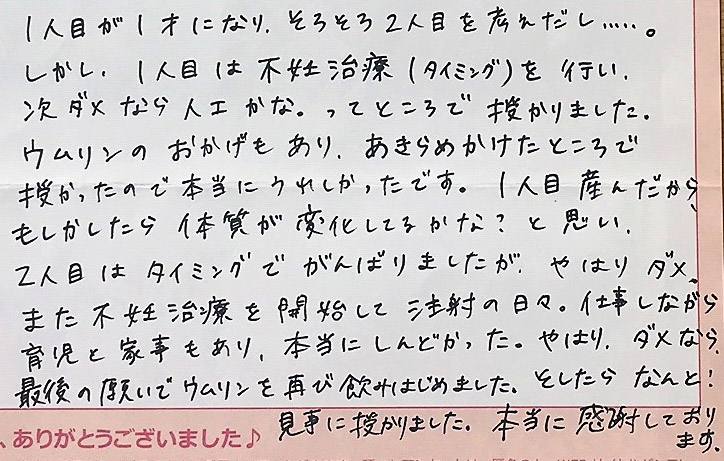 1人目が1才になり、そろそろ2人目を考えだし‥‥。
しかし、1人目は不妊治療(タイミング)を行い、
次ダメなら人工かな。ってところで授かりました。
ウムリンのおかげもあり、あきらめかけたところで
授かったので本当にうれしかったです。1人目産んだから、
もしかしたら体質が変化してるかな？と思い、
2人目はタイミングでがんばりましたが、やはりダメ、
また不妊治療を開始して注射の日々。仕事しながら
育児と家事もあり、本当にしんどかった。やはり、ダメなら、
最後の願いでウムリンを再び飲みはじめました。そしたらなんと！
見事に授かりました。本当に感謝しており
ます。
、ありがとうございました♪